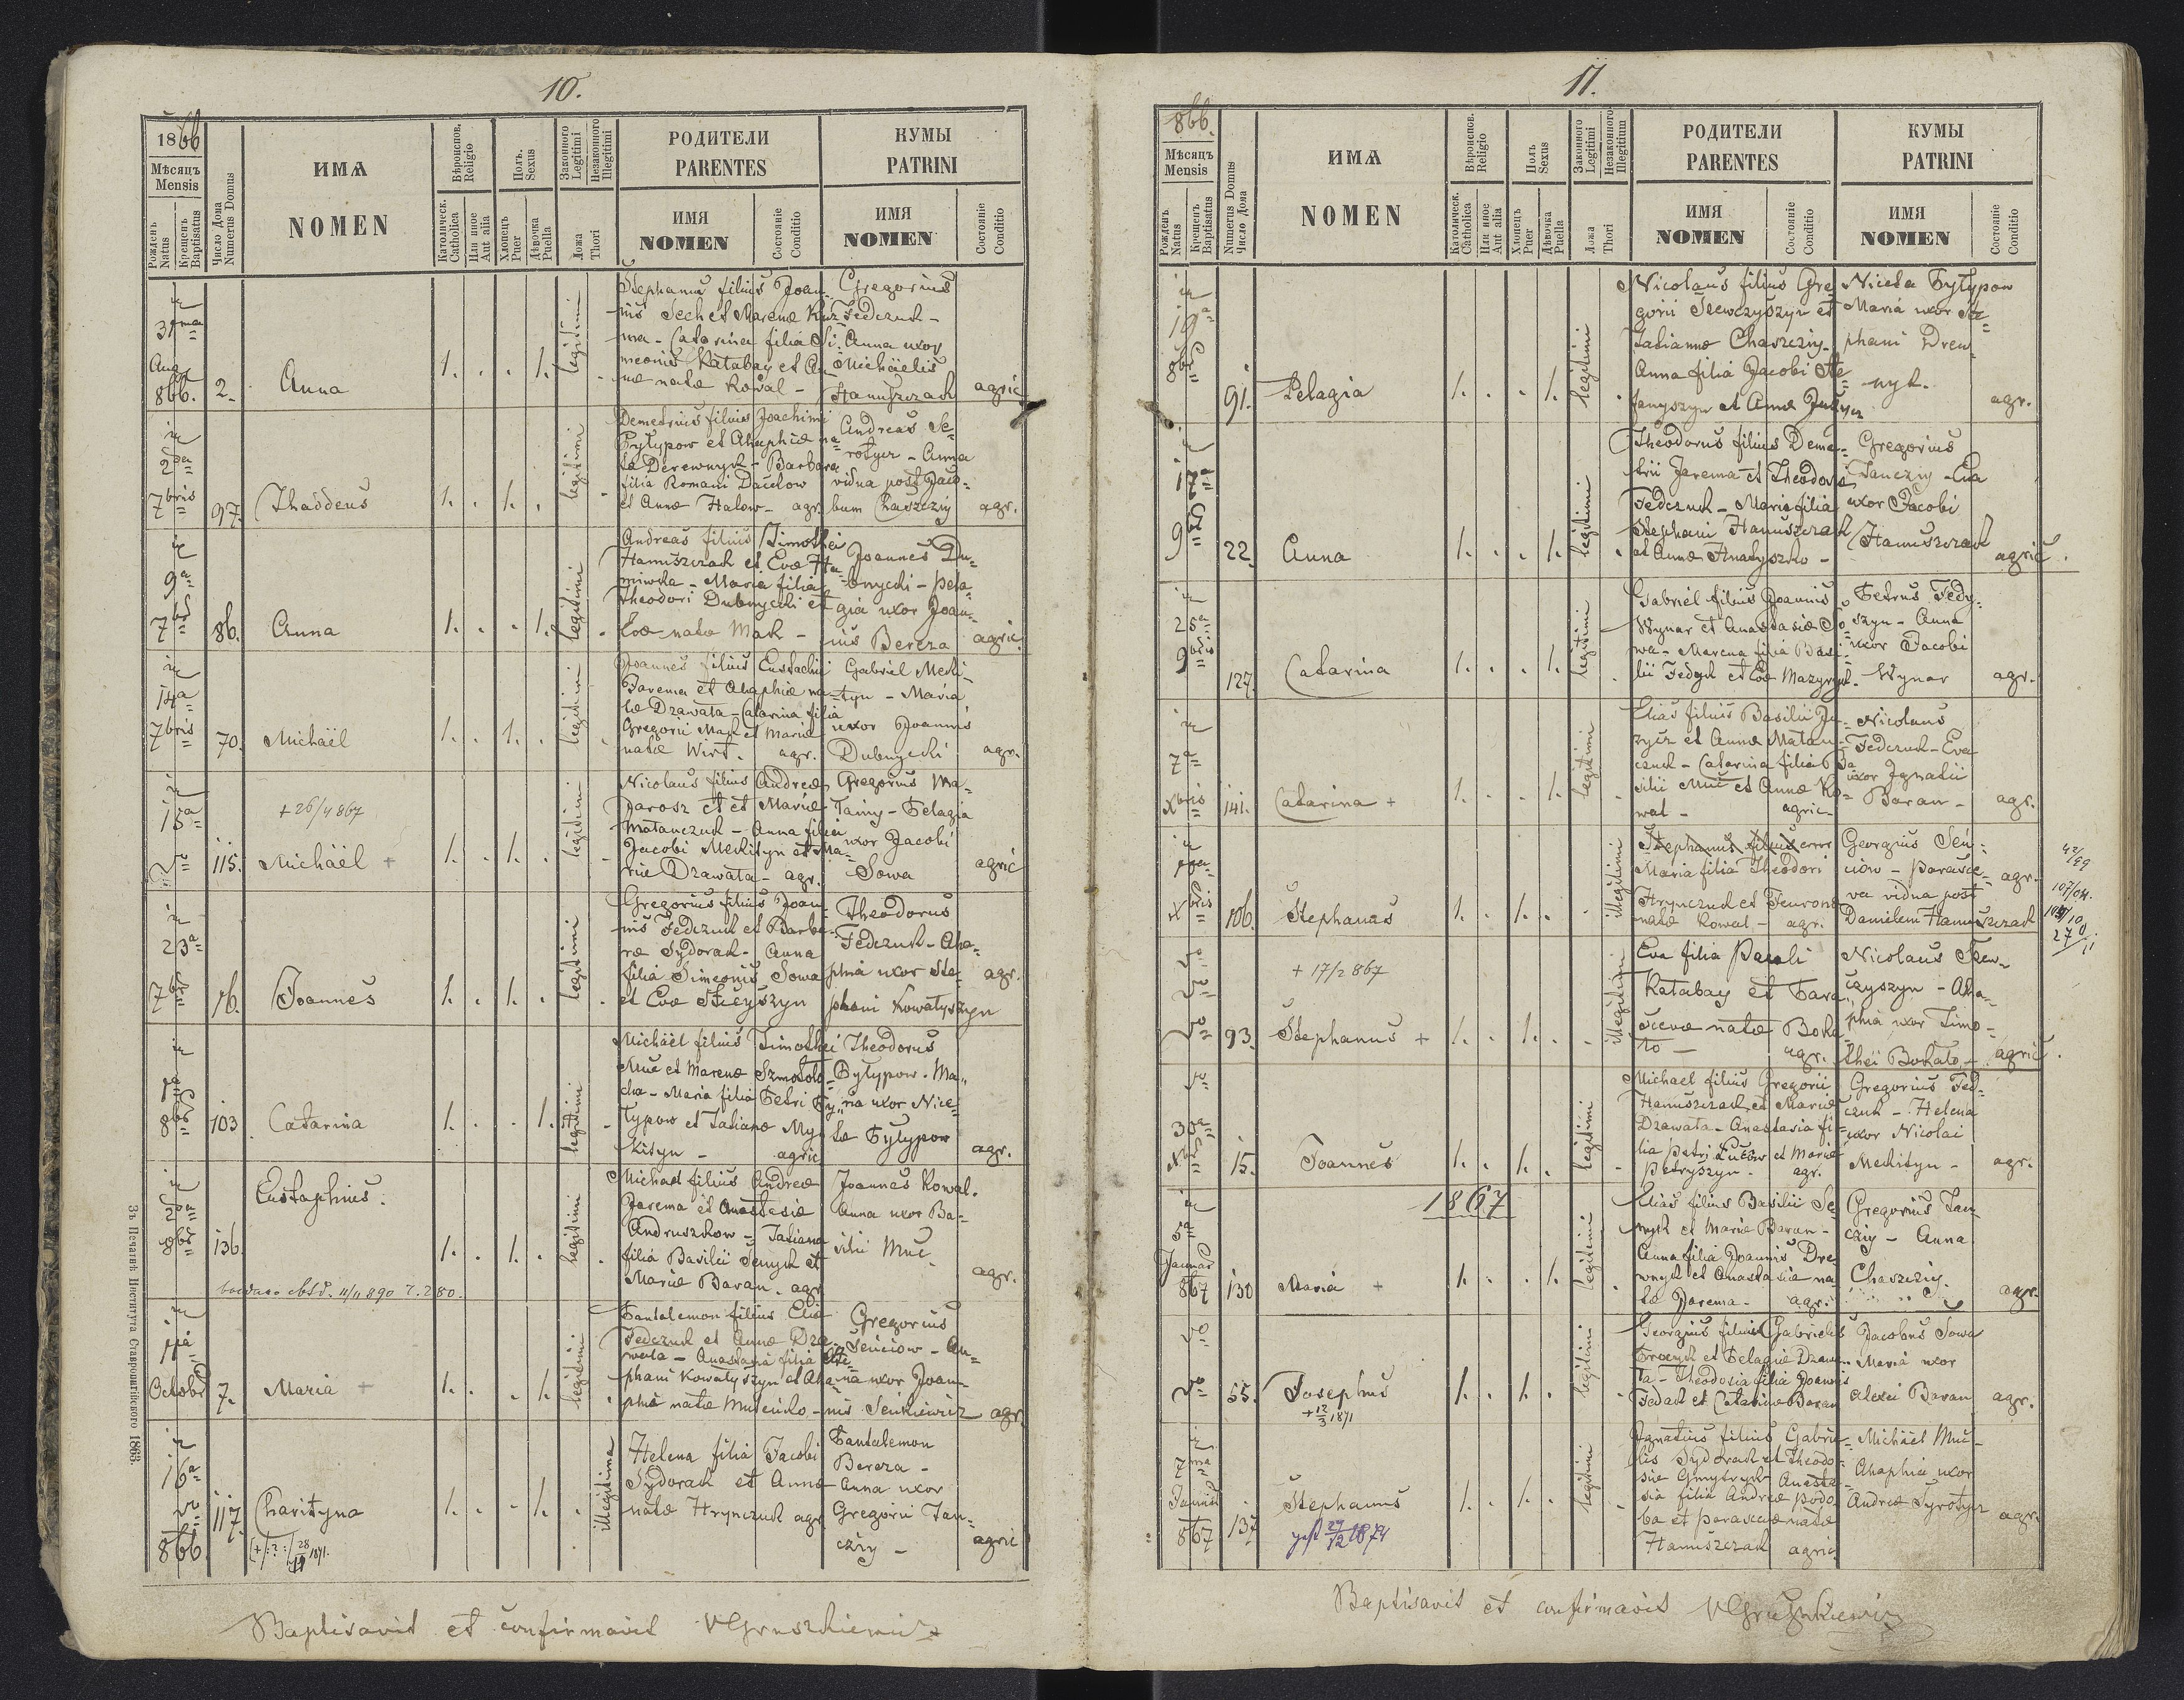 10.
1866
Мѣсяцъ
Mensis
Рожденъ
Natus
Крещенъ
Baptisatus
Число Дома
Numerus Domus
ИМѦ
NOMEN
Вѣроиспов.
Religio
Католическ.
Catholica
Или иное
Aut alia
Полъ.
Sexus
Хлопецъ
Puer
Дѣвочка
Puella
Законного
Legitimi
Незаконного
Illegitimi
Ложа
Thori
РОДИТЕЛИ
PARENTES
ИМЯ
NOMEN
Состояніе
Conditio
КУМЫ
PATRINI
ИМЯ
NOMEN
Состояніе
Conditio
in
31ma
Aug.
866. 2. Anna 1. . . 1. legitimi
Stephanus filius Joan-
nis Sech et Marenæ Kuz-
ma - Catarina filia Si-
meonis Katabay et An-
næ natæ Kowal -
Gregorius
Fedczuk -
Anna uxor
Michäelis
Hanuszczak agric
in
2da
7bris 97. Thaddeus 1. . 1. . legitimi
Demetrius filius Joachimi
Pylypow et Ahaphiæ na-
ta Derewnyck - Barbara
filia Romani Dacilow
et Annæ Halow - agr.
Andreas Se-
rotycz - Anna
vidua post Jaco-
bum Chaszczig agr.
in
9a
7bris 86. Anna 1. . . 1. legitimi
Andreas filius Timothei
Hanuszczak et Evæ Hu-
miwska - Maria filia
Theodori Dubnycki et
Evæ natæ Mach -
Joannes Du-
bnycki - Pela-
gia uxor Joan-
nis Bereza agric
in
14a
7bris 70. Michäel 1. . 1. . legitimi
Joannes filius Eustachii
Jarema et Ahaphiæ na-
tæ Drawata - Catarina filia
Gregorii Mach et Mariæ
natæ Wirt. agr.
Gabriel Meki-
tyn - Maria
uxor Joannis
Dubnycki agr.
in
15a
+ 26/4 867
115. Michäel + 1. . 1. . legitimi
Nicolaus filius Andreæ
Jarosz et et Mariæ
Matanczuk - Anna filia
Jacobi Mekityn et Ma-
riæ Drawata - agr.
Gregorius Ma-
Tainy - Pelagia
uxor Jacobi
Sowa agric
in
23a
7bris 16. Joannes 1. . 1. . legitimi
Gregorius filius Joan-
nis Fedczuk et Barba-
ræ Sydorak - Anna
filia Simeonis Sowa
et Evæ Steczyszyn
Theodorus
Fedczuk - Aha-
phia uxor Ste-
phani Kowatyszyn agr.
in
1a
8bris 103. Catarina 1. . . 1. legitimi
Michäel filius Timothei
Muc et Marenæ Szmotolo-
cha - Maria filia Petri Py-
typow et Tatianæ My-
kityn - agric
Theodorus
Pylypow. Ma-
ria uxor Nice-
tæ Pylypow agr.
in
8bris 136. Eustaphius. 1. . 1. . legitimi
Michael filius Andreæ
Jarema et Anastasiæ
Andruszkow - Tatiana
filia Basilii Senyck et
Mariæ Baran. agr
Joannes Kowal.
Anna uxor Ba-
silii Muc agr.
11/11 890 280.
in
11a
Octobr 7. Maria + 1. . . 1. legitimi
Pantalemon filius Eliæ
Fedczuk et Annæ Dra-
wata - Anastasia filia Ste-
phani Kowatyszyn et Aha-
phiæ natæ Musenko -
Gregorius
Senciow - An-
na uxor Joan-
nis Senkiewicz agr.
in
16a
866 117. Charityna 1. . . 1. illegitima
(+):?:/ 28/11 1871.
Helena filia Jacobi
Sydorak et Annæ
natæ Hrynczuk agr
Pantalemon
Bereza -
Anna uxor
Gregorii Tan-
cziy - agric
Baptisavit et confirmavit VGruszkiewicz
Зъ Печатнѣ Института Ставропигійского 1863.
11.
866.
Мѣсяцъ
Mensis
Рожденъ
Natus
Крещенъ
Baptisatus
Numerus Domus
Число Дома
ИМѦ
NOMEN
Вѣроиспов.
Religio
Католическ.
Catholica
Или иное
Aut alia
Полъ
Sexus
Хлопецъ
Puer
Дѣвочка
Puella
Законного
Legitimi
Незаконного
Illegitimum
Ложа
Thori
РОДИТЕЛИ
PARENTES
ИМЯ
NOMEN
Состояніе
Conditio
КУМЫ
PATRINI
ИМЯ
NOMEN
Состояніе
Conditio
in
10a
8bris 91. Pelagia 1. . . 1. legitimi
Nicolaus filius Gre-
gorii Szewczyszyn et
Tatiannæ Chaszcziy -
Anna filia Jacobi Ste-
fanyszyn et Annæ
Niceta Pylypow
Maria uxor Ste-
phani Drew-
nyk. agr.
in
17a
9bris 22. Anna 1. . . 1. legitimi
Theodorus filius Deme-
trii Jarema et Theodosiæ
Fedczuk - Maria filia
Stephani Hanuszczak
et Annæ Hnatyszko -
Gregorius
Tancziy - Eva
uxor Jacobi
Hanuszczak agric.
in
25a
9bris 127. Catarina 1. . . 1. legitimi
Gabriel filius Joannis
Wynar et Anastasiæ So-
wa - Marena filia Basi-
lii Fedyck et Evæ Mazyryk.
Petrus Fedy-
szyn - Anna
uxor Jacobi
Wynar agr.
in
7a
Xbris 141. Catarina + 1. . . 1. legitimi
Elias filius Basilii Ju-
rycz et Annæ Matan-
czuk - Catarina filia Ba-
silii Muc et Annæ Ko-
wal - agric -
Nicolaus
Fedczuk - Eva
uxor Ignatii
Baran - agr.
in
Xbris 106. Stephanus 1. . 1. . illegitimi
Stephanus filius error
Maria filia Theodori
Hrynczuk et Feuronæ
natæ Kowal - agr.
Georgius Sen-
ciow - Parasce-
va vidua post
Danilem Hanuszczak agr.
42/99
107/04.
+ 17/2 867
93. Stephanus + 1. . 1. . illegitimi
Eva filia Pauli
Katabay et Para-
scevæ natæ Boka-
to - agr.
Nicolaus Szew-
czyszyn - Aha-
phia uxor Timo-
thei Bokato - agric.
30a
15. Joannes 1. . 1. . legitimi
Michael filius Gregorii
Hanuszczak et Mariæ
Drawata - Anastasia fi-
lia Petri Lutzow et Mariæ
Petryszyn - agr.
Gregorius Fed-
czuk - Helena
uxor Nicolai
Mekityn - agr.
1867
in
5a
Januar
867 130 Maria + 1. . . 1. legitimi
Elias filius Basilii Se-
nyck et Mariæ Baran -
Anna filia Joannis Dre-
wnyk et Anastasiæ na-
tæ Jarema - agr.
Gregorius Tan-
cziy - Anna
Chaszcziy. agr.
55. Josephus 1. . 1. . legitimi
+ 12/3 1871
Georgius filius Gabrielis
Procyk et Pelagiæ Drawa-
ta - Theodosia filia Joannis
Fedack et Catarinæ Baran
Jacobus Sowa
Maria uxor
Alexii Baran agr.
in
7ma
Januar
867 137 Stephanus 1. . 1. . legitimi
Ignatius filius Gabrie-
lis Sydorak et Theodo-
siæ Gmytryk Anasta-
sia filia Andreæ Podo-
ba et Parascevæ natæ
Hanuszczak agric
Michäel Muc -
Ahaphia uxor
Andreæ Syrotycz agr.
Baptisavit et confirmavit VGruszkiewicz